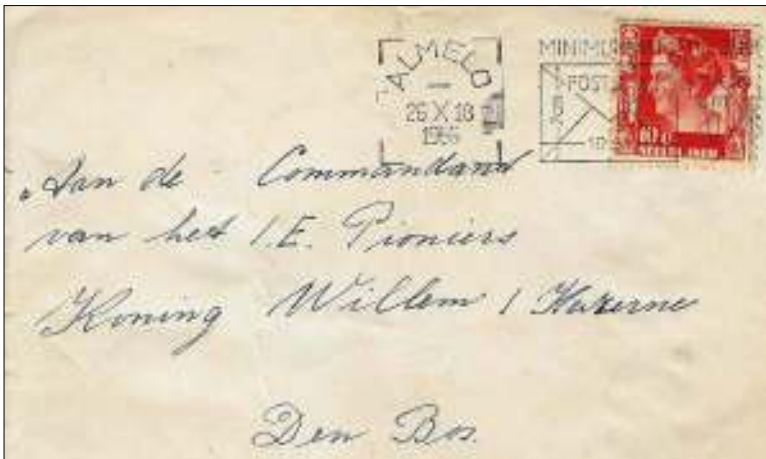 ALMELO
26 X 18
1966
MINIMUM
POST
Aan de Commandand
van het 1.E. Pioniers
Koning Willem 1 Kazerne
Den Bos.